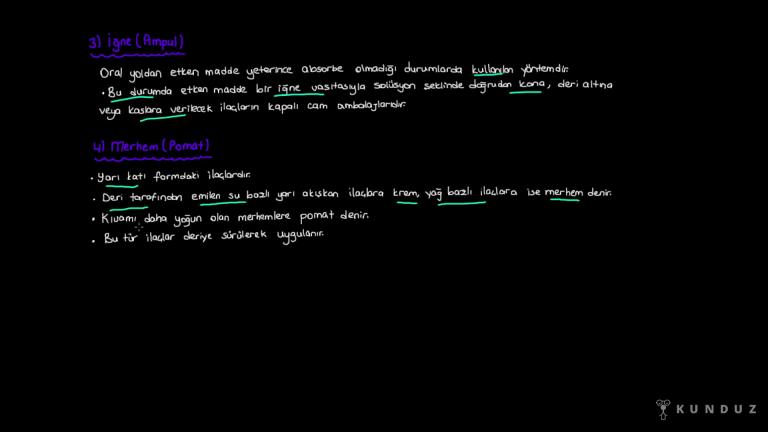 3) İğne (Ampul)
Oral yoldan etken madde yeterince absorbe olmadığı durumlarda kullanılan yöntemdir.
• Bu durumda etken madde bir iğne vasıtasıyla solüsyon şeklinde doğrudan kana, deri altına
veya kaslara verilecek ilaçların kapalı cam ambalajlarıdır.
4) Merhem (Pomat)
• Yarı katı formdaki ilaçlardır.
• Deri tarafından emilen su bazlı yarı akışkan ilaçlara krem, yağ bazlı ilaçlara ise merhem denir.
• Kıvamı daha yoğun olan merhemlere pomat denir.
• Bu tür ilaçlar deriye sürülerek uygulanır.
KUNDUZ